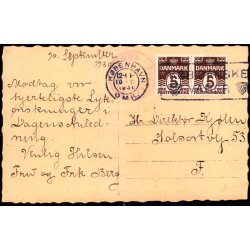 30. September
1930
Modtag vor
hjerteligste Lyk-
ønskninger i
Dagens Anled-
ning.
Venlig Hilsen
Fru og Frk Berg
KØBENHAVN
OMK.
DANMARK
5
DANMARK
5
Hr. Direktør
53
F.